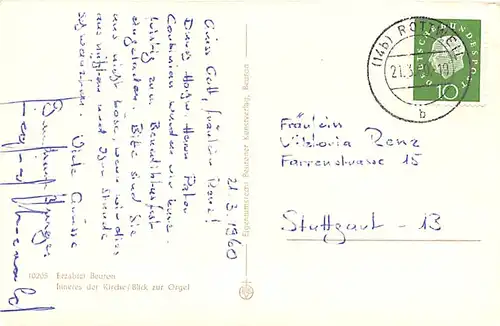 21.3.1960
Grüss Gott, Fräulein Renz!
Durch Hochw. Herrn Pater
wurden wir kurz-
fristig zum Benediktusfest
eingeladen. Bitte sind Sie
uns nicht böse, wenn wir dies
ausnützen und eine Stunde
schwänzen. Viele Grüsse
10205 Erzabtei Beuron
Inneres der Kirche/Blick zur Orgel
Eigentumsrecht Beuroner Kunstverlag, Beuron
(14b) ROTTWEIL
21.3.60.
b
DEUTSCHE BUNDESPOST
10
Fräulein
Viktoria Renz
Farrenstrasse 15
Stuttgart - 13